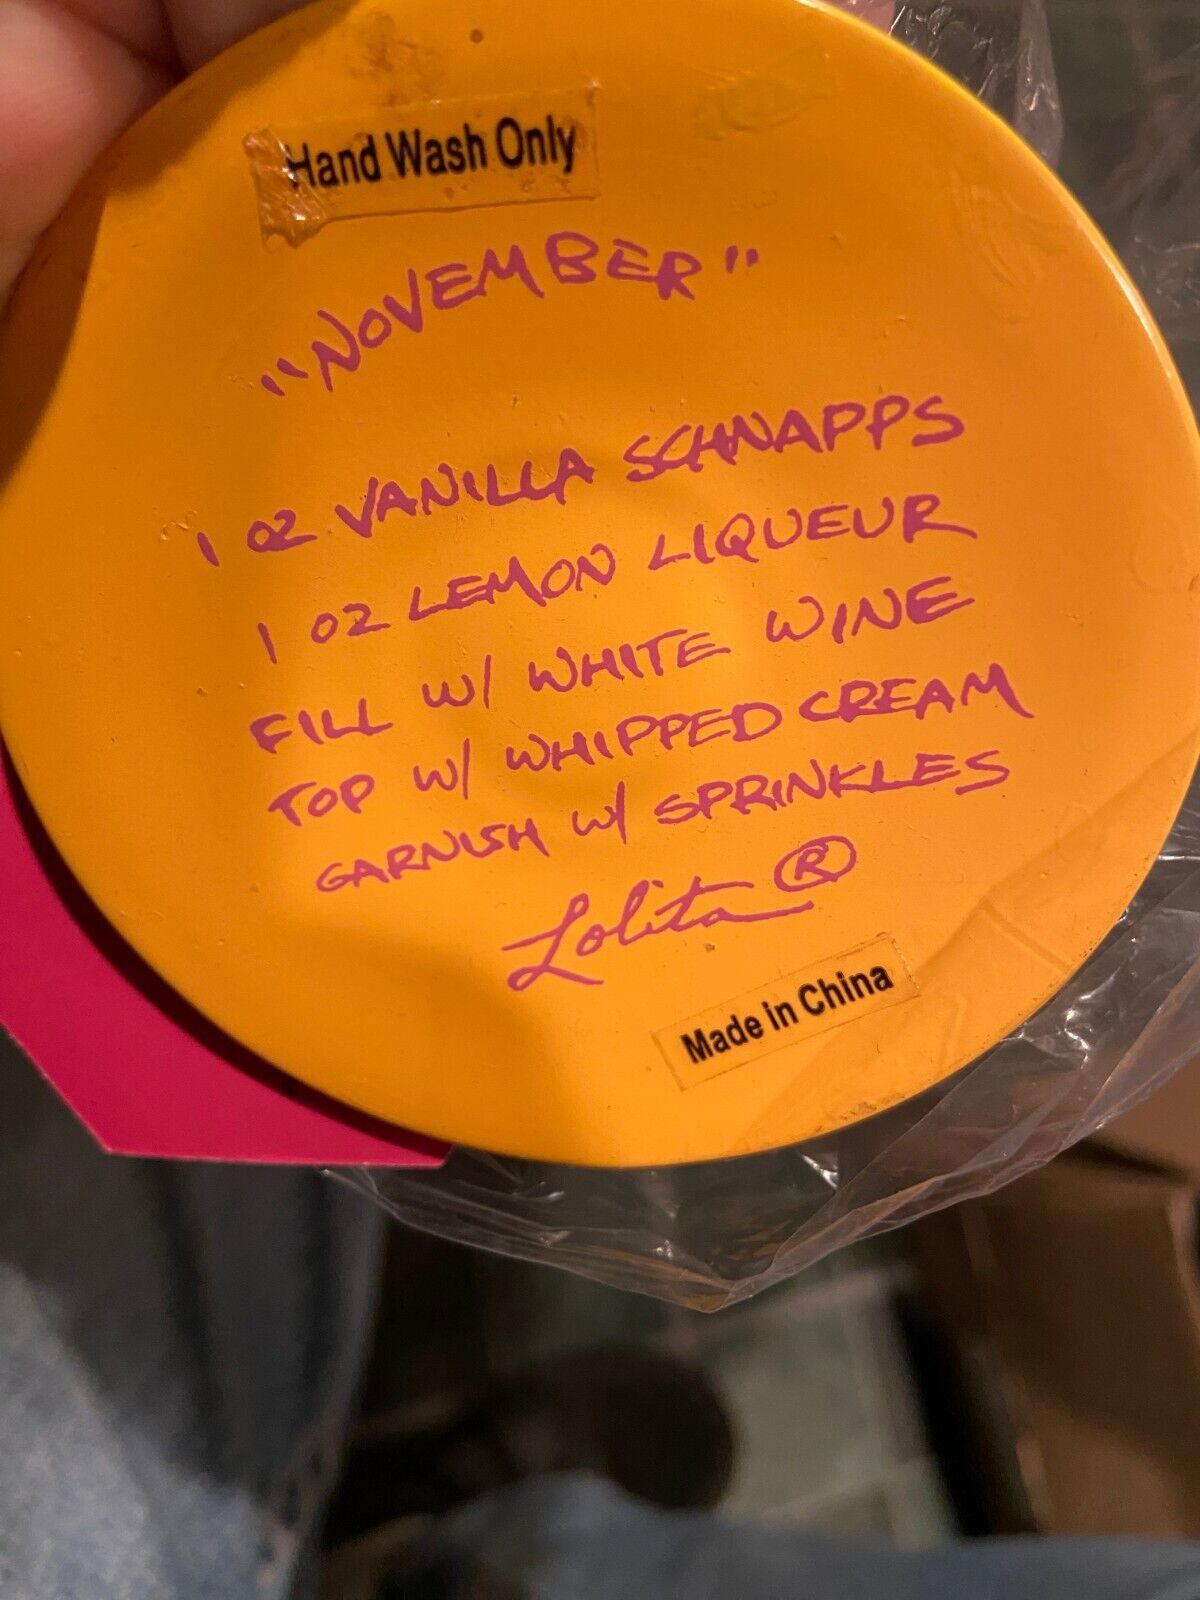 Hand Wash Only
"NOVEMBER"
1 OZ VANILLA SCHNAPPS
1 OZ LEMON LIQUEUR
FILL W/ WHITE WINE
TOP W/ WHIPPED CREAM
GARNISH W/ SPRINKLES
Lolita ®
Made in China